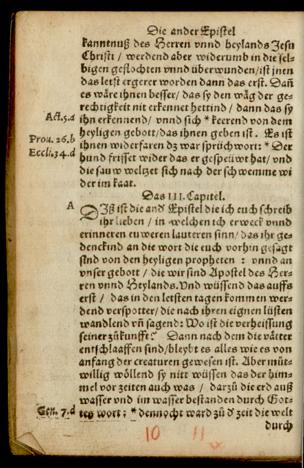 Die ander Epistel
kanntnuß des Herren vnnd heylands Jesu
Christi / werdend aber widerumb in die sel-
bigen geflochten vnnd überwunden / ist jnen
das letst ergerer worden dann das erst. Dañ
es wäre jhnen besser / das sy den wäg der ge-
rechtigkeit nit erkennet hettind / dann das sy
Act.5.a
jhn erkennend / vnnd sich * keerend von dem
heyligen gebott / das jhnen geben ist. Es ist
Prou. 26.b
jhnen widerfaren dz war sprüchwort: * Der
Eccli.34.d
hund frisset wider das er gespeüwt hat / vnd
die sauw weltzt sich nach der schwemme wi
der im kaat.
Das III. Capitel.
A
Diß ist die and Epistel die ich euch schreib
jhr lieben / in welchen ich erweck vnnd
erinneren euweren lauteren sinn / das jhr ge-
denckind an die wort die euch vorhin gesagt
sind von den heyligen propheten : vnnd an
vnser gebott / die wir sind Apostel des Her-
ren vnnd Heylands. Vnd wüssend das auffs
erst / das in den letsten tagen kommen wer-
dend verspotter / die nach jhren eignen lüsten
wandlend vñ sagend: Wo ist die verheissung
seiner zůkunfft? Dann nach dem die vätter
entschlaaffen sind / bleybt es alles wie es von
anfang der creaturen gewesen ist. Aber můt-
willig wöllend sy nitt wüssen das der him-
mel vor zeiten auch was / darzů die erd auß
wasser vnd im wasser bestanden durch Got-
Gen. 7.d
tes wort : * dennocht ward zů d zeit die welt
durch
10 11